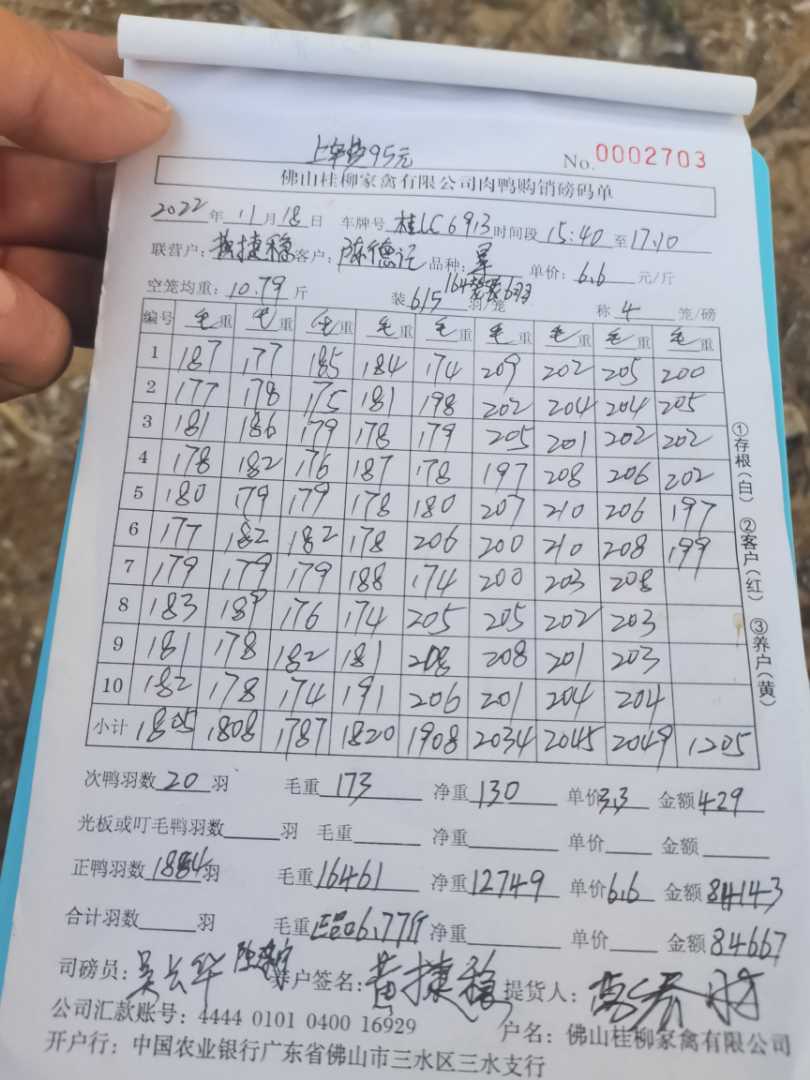 上车费95元
No.0002703
佛山桂柳家禽有限公司肉鸭购销磅码单
2022年11月18日 车牌号 桂LC6913 时间段 15:40 至 17:10
联营户: 黄捷稳 客户: 陈德记 品种: 单价: 6.6 元/斤
空笼均重: 10.79 斤 装 615 羽/笼 称 4 笼/磅
编号 毛重 毛重 毛重 毛重 毛重 毛重 毛重 毛重 毛重
1 187 177 185 184 174 209 202 205 200
2 177 178 175 181 198 202 204 204 205
3 181 186 179 178 179 205 201 202 202
4 178 182 176 187 178 197 208 206 202
5 180 179 179 178 180 207 210 206 197
6 177 182 182 178 206 200 210 208 199
7 179 179 179 188 174 200 203 208
8 183 189 176 174 205 205 202 203
9 181 178 182 181 208 208 201 203
10 182 178 174 191 206 201 204 204
小计 1805 1808 1787 1820 1908 2034 2045 2049 1205
次鸭羽数 20 羽 毛重 173 净重 130 单价 3.3 金额 429
光板或叮毛鸭羽数 羽 毛重 净重 单价 金额
正鸭羽数 1884 羽 毛重 16461 净重 12749 单价 6.6 金额 84143
合计羽数 羽 毛重 6.77斤 净重 单价 金额 84667
司磅员: 吴云华 养户签名: 黄捷稳 提货人:
公司汇款账号: 4444 0101 0400 16929 户名: 佛山桂柳家禽有限公司
开户行: 中国农业银行广东省佛山市三水区三水支行
①存根(白) ②客户(红) ③养户(黄)